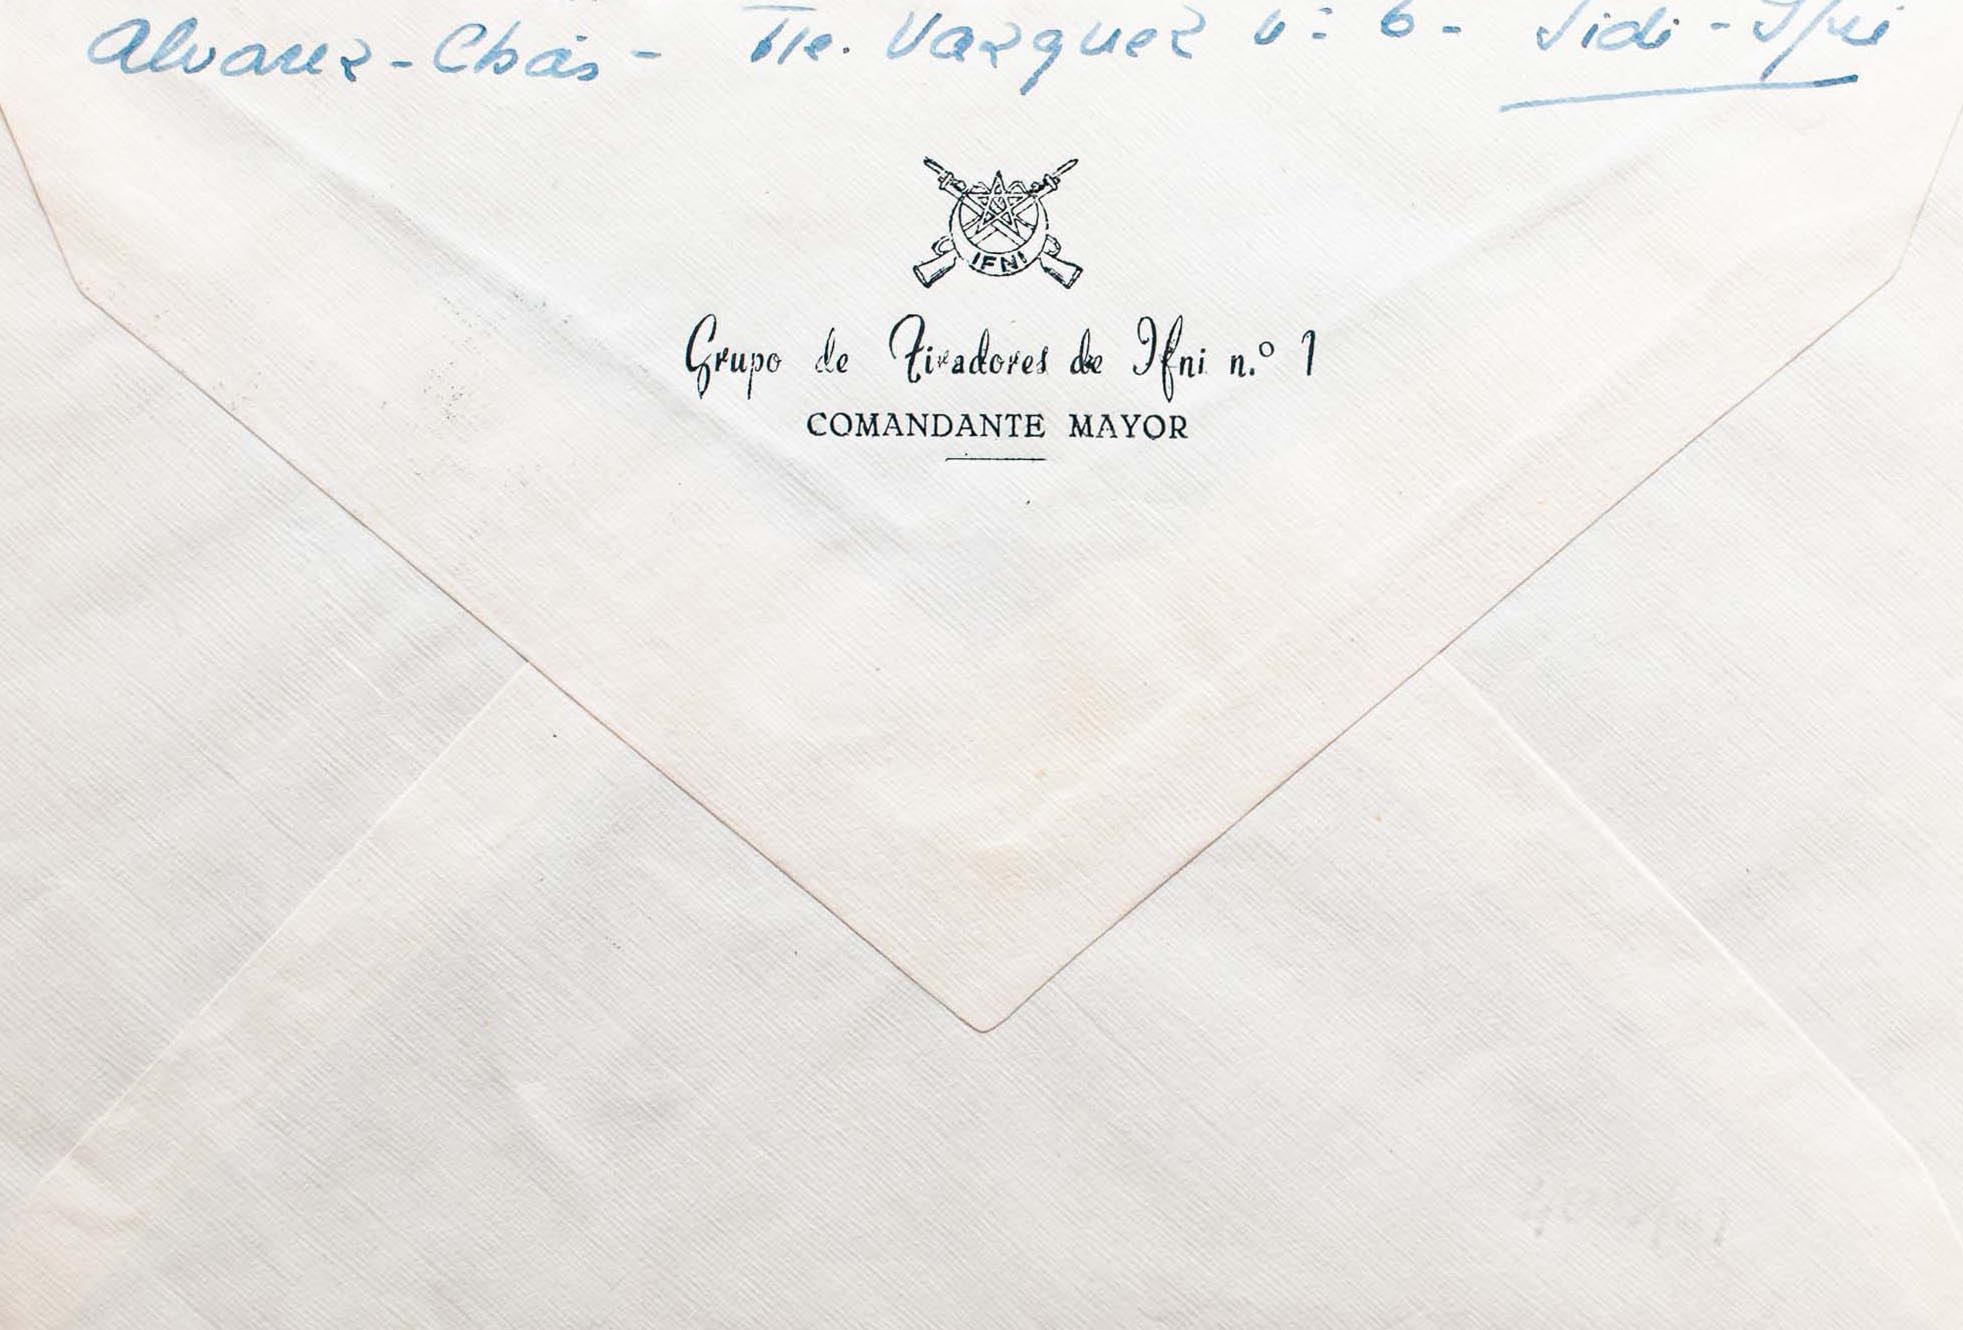 Alvarez - Chás - Tte. Vazquez nº 6 - Sidi - Ifni
IFNI
Grupo de Tiradores de Ifni n.º 1
COMANDANTE MAYOR